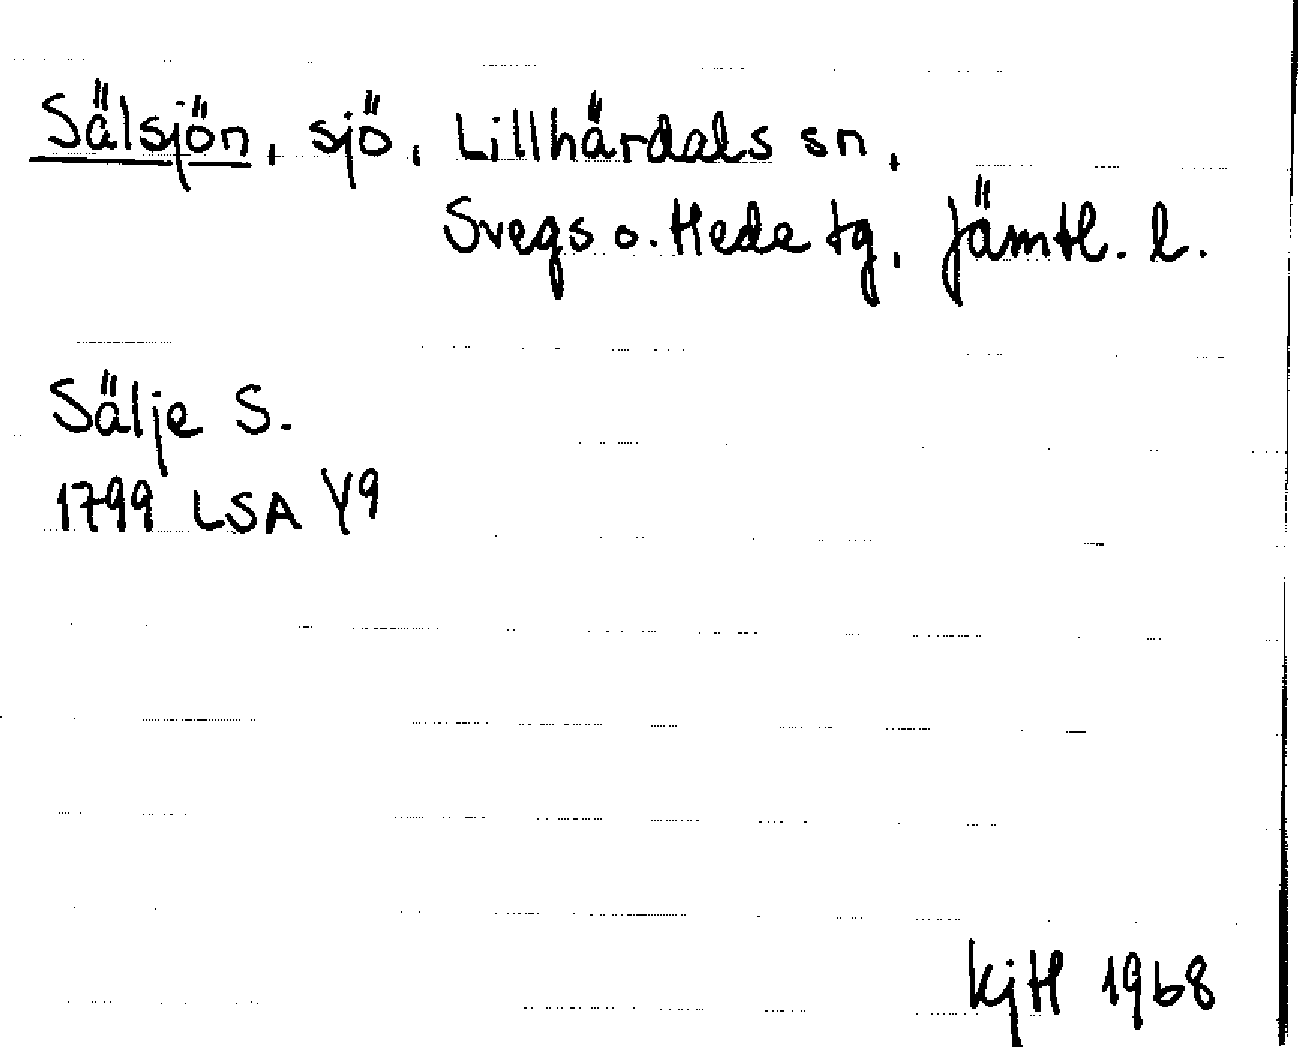 Sälsjön, sjö, Lillhärdals sn,
Svegs o. Hede tg, Jämtl. l.
Sälje S.
1799 LSA Y9
KjH 1968